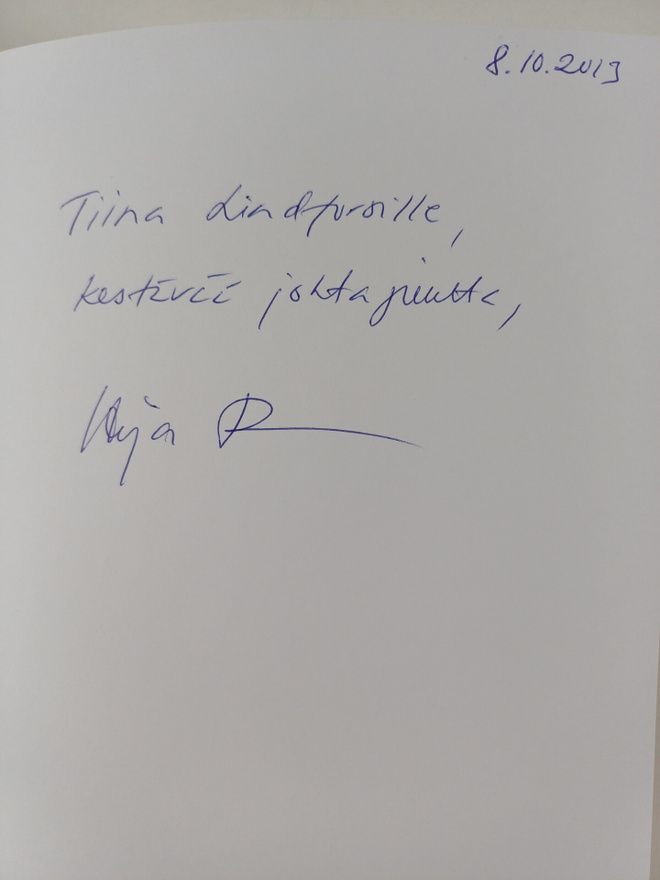 8.10.2013
Tiina Lindforsille,
kestävää johtajuutta,